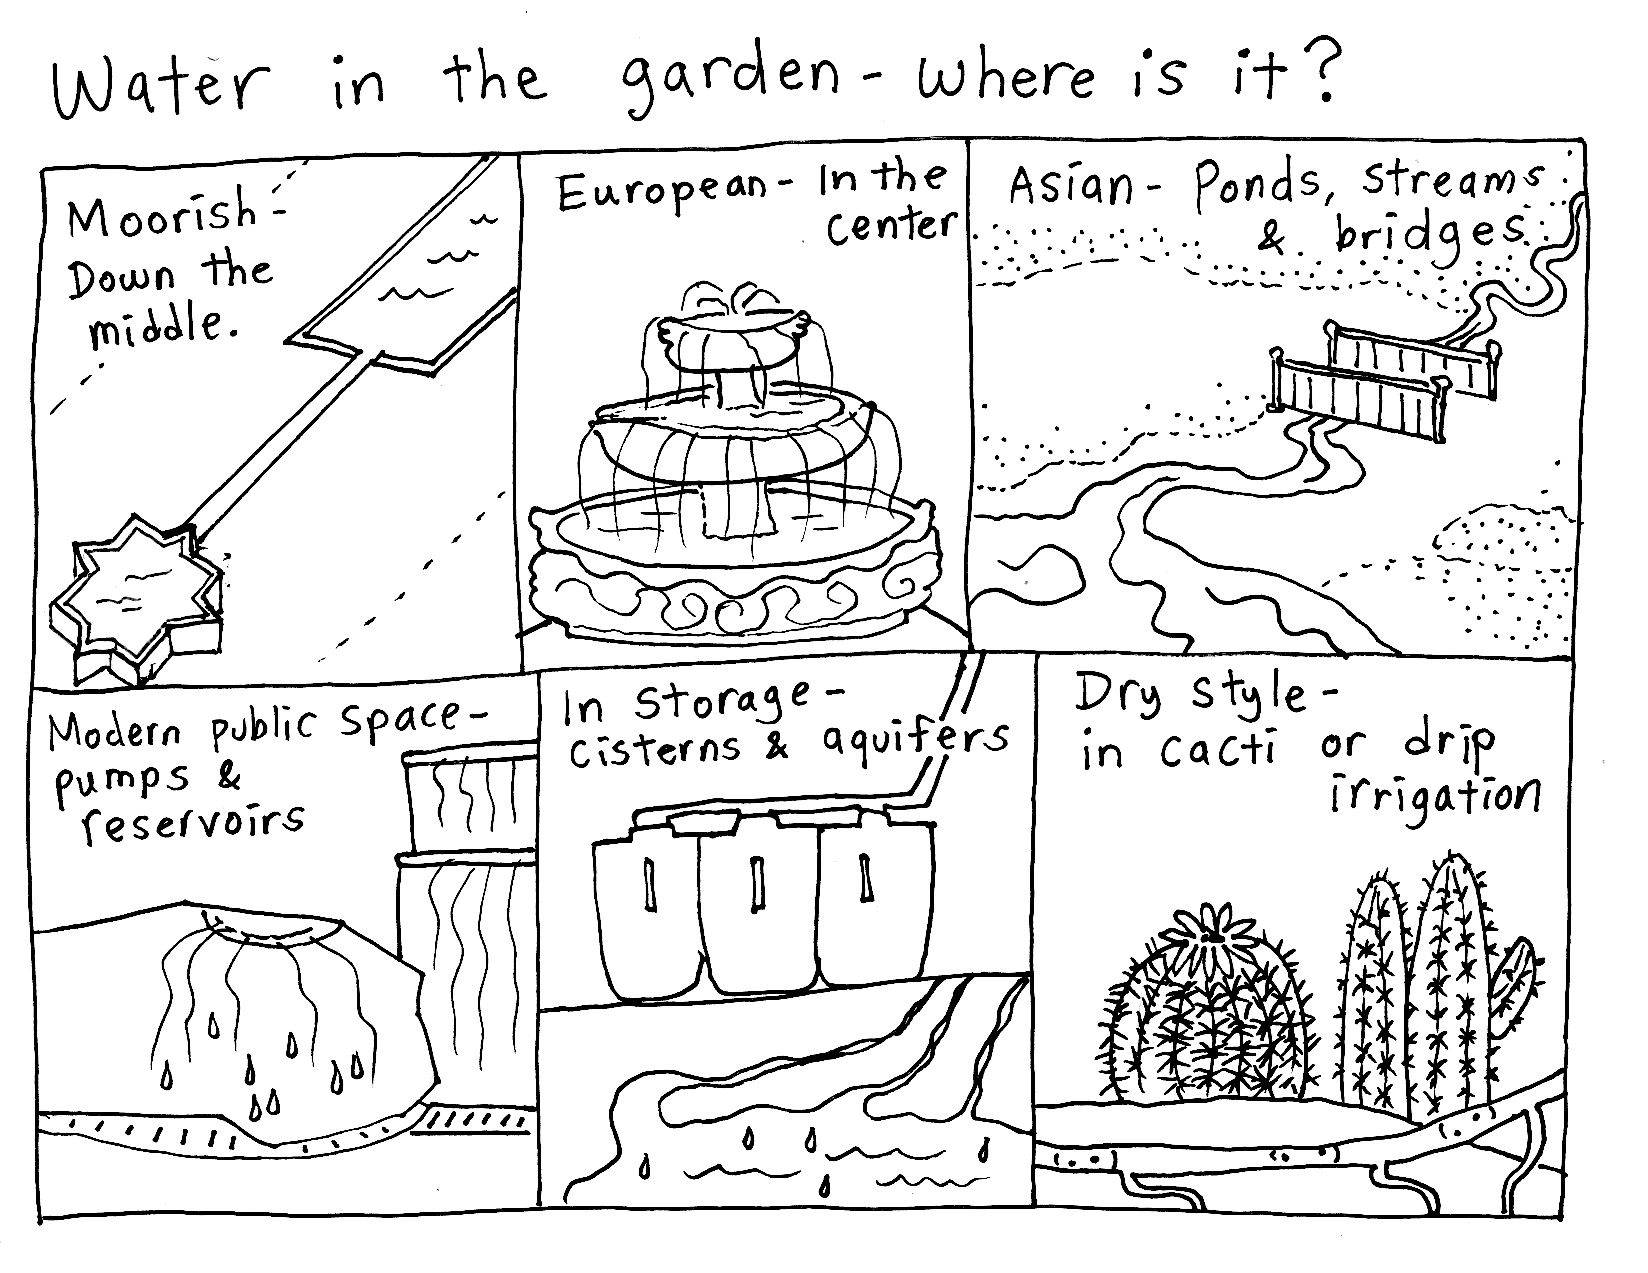 Water in the garden - where is it?
Moorish -
Down the
middle.
European - In the
center
Asian - Ponds, streams
& bridges
Modern public space -
pumps &
reservoirs
In storage -
cisterns & aquifers
Dry style -
in cacti or drip
irrigation